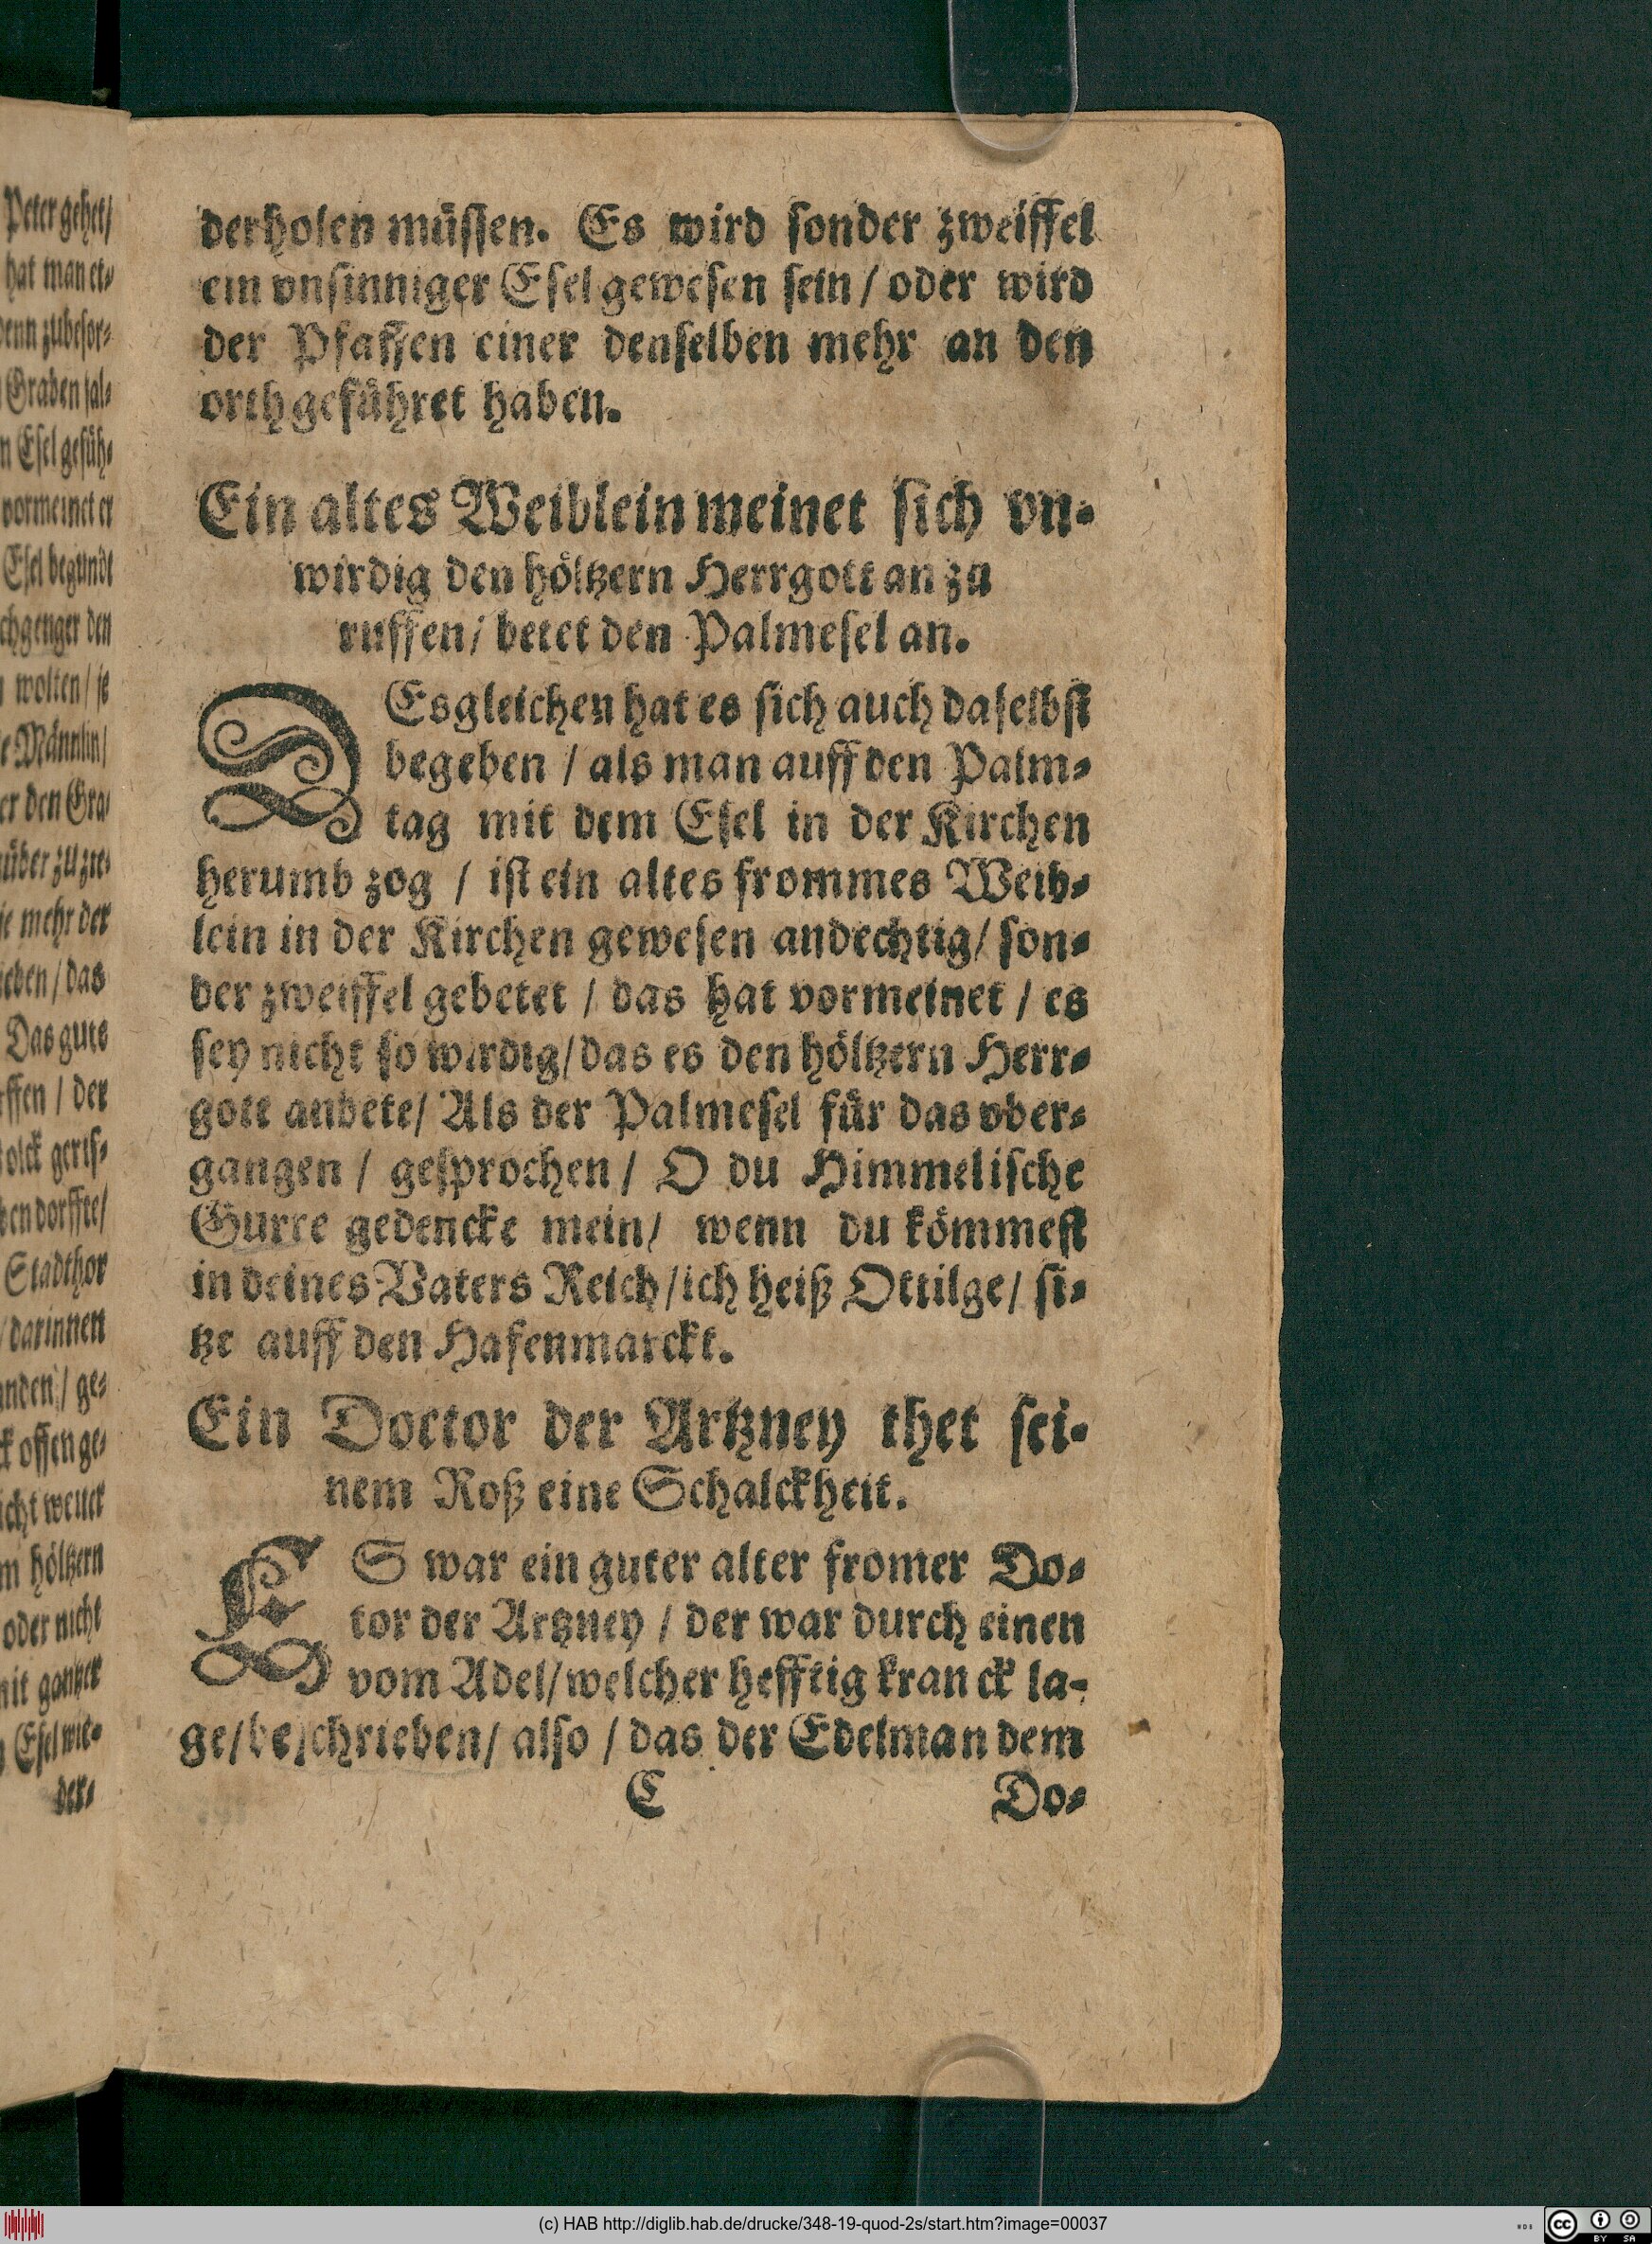 Peter gehet/
hat man et⸗
denn zubesor⸗
Graben fal⸗
n Esel gefüh⸗
vormeinet er
Esel begundt
chgenger den
wolten / je
e Männlin/
er den Gra⸗
über zu zie⸗
je mehr der
ieben / das
Das gute
ffen / der
olck geris⸗
ben dorffte/
Stadthor
/ darinnen
anden / ge⸗
ck offen ge⸗
icht weiter
m höltzern
oder nicht
mit gantzer
Esel wie⸗
der⸗
derholen müssen. Es wird sonder zweiffel
ein vnsinniger Esel gewesen sein / oder wird
der Pfaffen einer denselben mehr an den
orth geführet haben.
Ein altes Weiblein meinet sich vn⸗
wirdig den höltzern Herrgott an zu
ruffen / betet den Palmesel an.
DEsgleichen hat es sich auch daselbst
begeben / als man auff den Palm⸗
tag mit dem Esel in der Kirchen
herumb zog / ist ein altes frommes Weib⸗
lein in der Kirchen gewesen andechtig / son⸗
der zweiffel gebetet / das hat vormeinet / es
sey nicht so wirdig / das es den höltzern Herr⸗
gott anbete / Als der Palmesel für das vber⸗
gangen / gesprochen / O du Himmelische
Gurre gedencke mein / wenn du kömmest
in deines Vaters Reich / ich heiß Ottilge / si⸗
tze auff den Hafenmarckt.
Ein Doctor der Artzney thet sei⸗
nem Roß eine Schalckheit.
ES war ein guter alter fromer Do⸗
tor der Artzney / der war durch einen
vom Adel / welcher hefftig kranck la⸗
ge / beschrieben / also / das der Edelman dem
C Do⸗
(c) HAB http://diglib.hab.de/drucke/348-19-quod-2s/start.htm?image=00037
cc BY SA